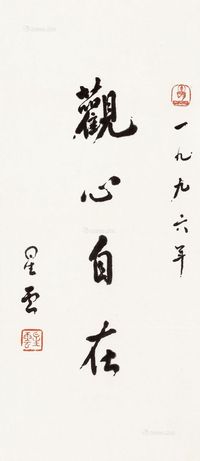 一九九六年
觀心自在
星雲